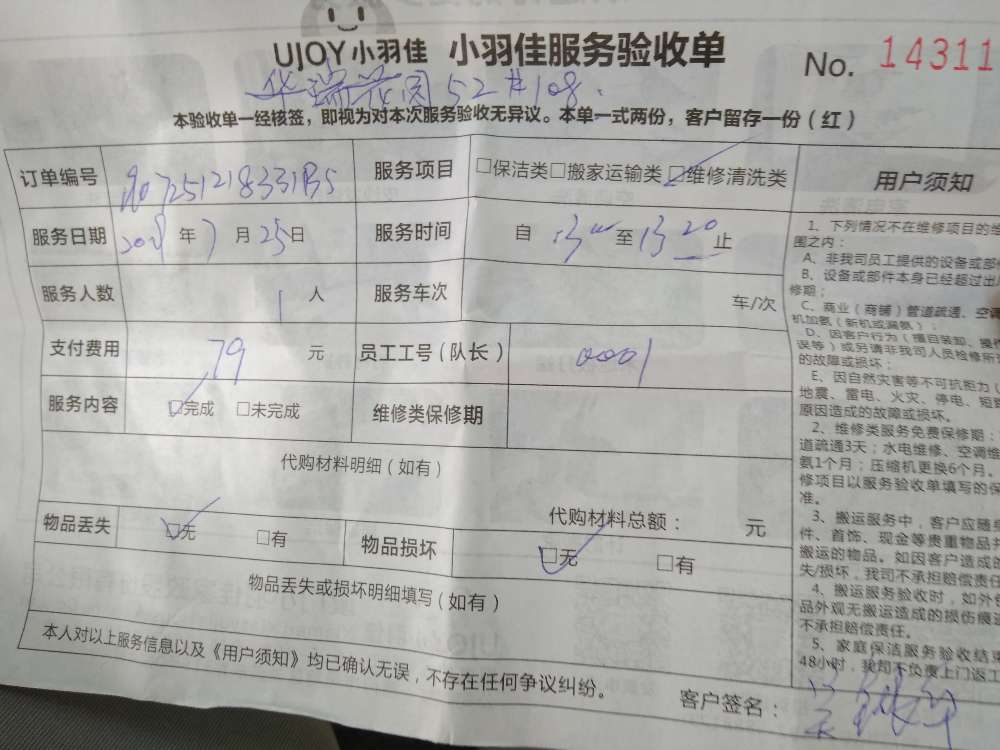 UJOY小羽佳 小羽佳服务验收单 No. 14311
华瑞花园52#108.
本验收单一经核签，即视为对本次服务验收无异议。本单一式两份，客户留存一份（红）
订单编号
服务项目 □保洁类□搬家运输类□维修清洗类
服务日期 年7月25日
服务时间 自 至13 20止
服务人数 1人
服务车次 车/次
支付费用 79元
员工工号（队长） 0001
服务内容 □完成 □未完成
维修类保修期
代购材料明细（如有）
代购材料总额： 元
物品丢失 □无 □有
物品损坏 □无 □有
物品丢失或损坏明细填写（如有）
本人对以上服务信息以及《用户须知》均已确认无误，不存在任何争议纠纷。
客户签名：
用户须知
1、下列情况不在维修项目的维
围之内：
A、非我司员工提供的设备或部
B、设备或部件本身已经超过出
修期；
C、商业（商铺）管道疏通、空调
机加氨（新机或漏氨）；
D、因客户行为（擅自装卸、操
误等）或另请非我司人员检修所
的故障或损坏；
E、因自然灾害等不可抗拒力（
地震、雷电、火灾、停电、短
原因造成的故障或损坏。
2、维修类服务免费保修期：
道疏通3天；水电维修、空调维
氨1个月；压缩机更换6个月。
修项目以服务验收单填写的保
准。
3、搬运服务中，客户应随身
件、首饰、现金等贵重物品并
搬运的物品。如因客户造成的
失/损坏，我司不承担赔偿责任
4、搬运服务验收时，如外
品外观无搬运造成的损伤痕迹
不承担赔偿责任。
5、家庭保洁服务验收结束
48小时，我司不负责上门返工